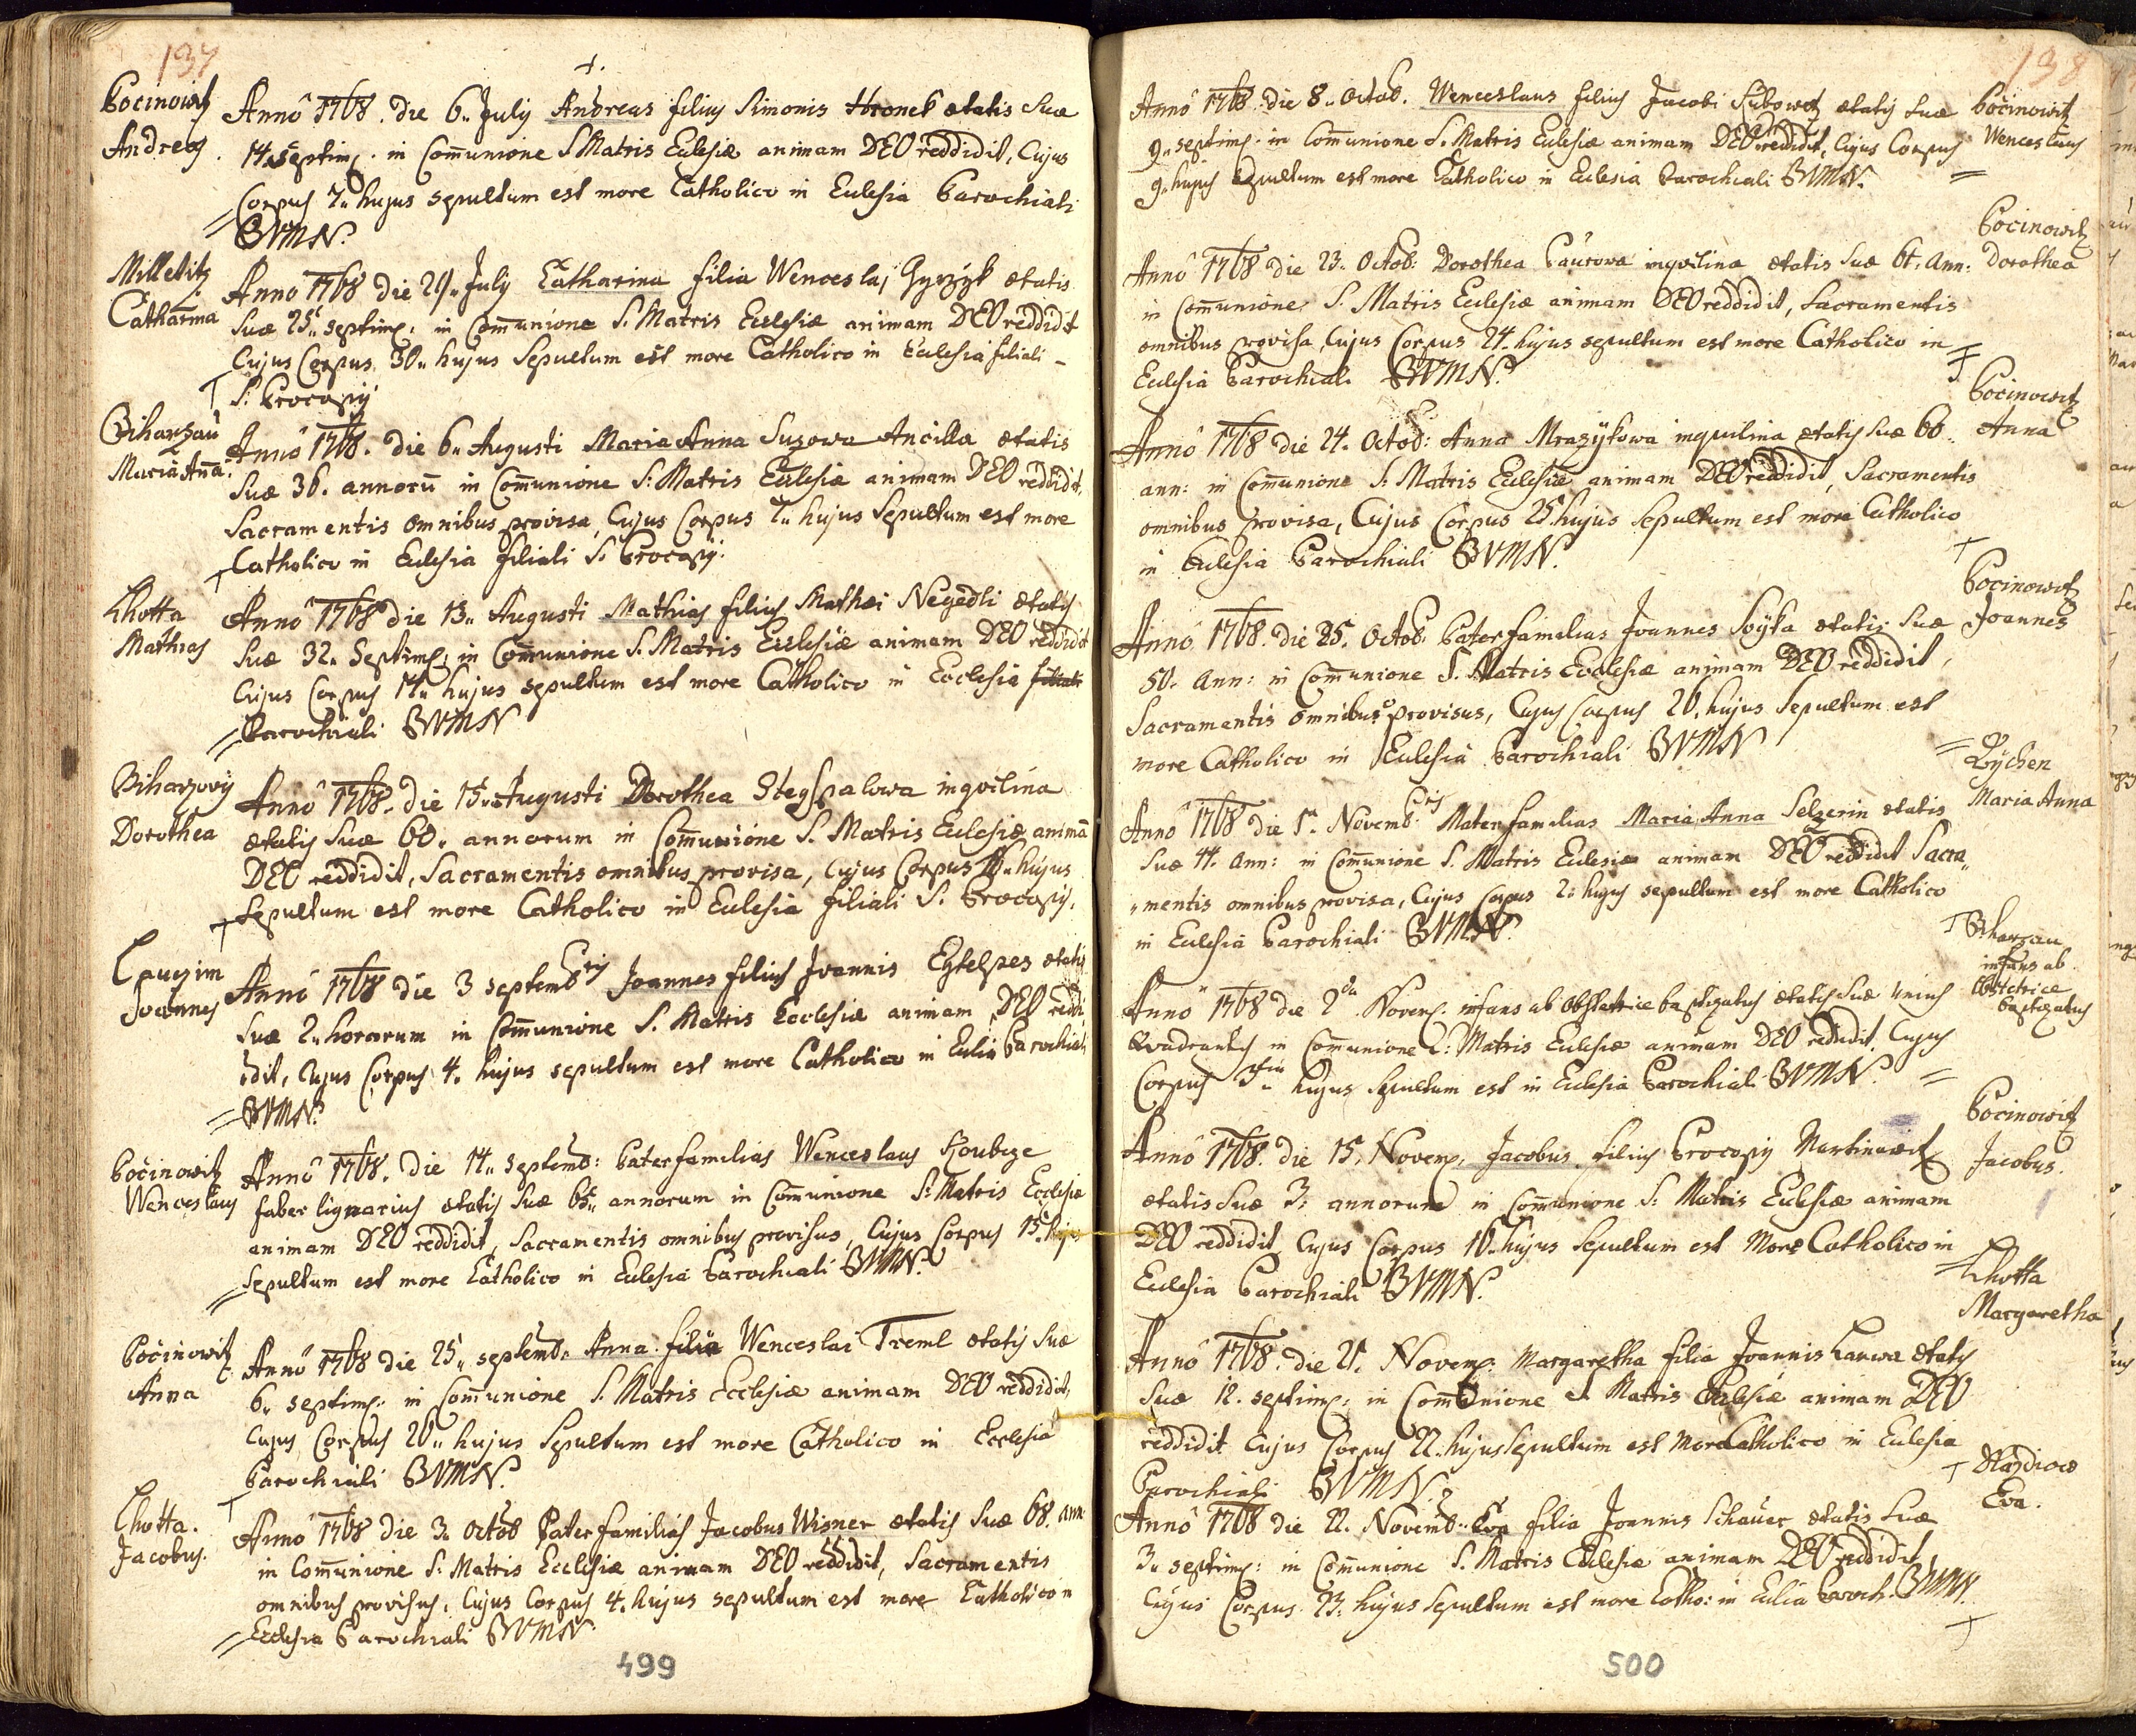 137
†.
Pocinowitz
Andreas.
Annô 1768. die 6. July Andreas filius Simonis Hronek ætatis suæ
14. septim: in Com̄unione S. Matris Eclesiæ animam DEO reddidit, Cujus
Corpus 7. hujus sepultum est more Catholico in Eclesia Parochiali
BVMN.
Milletitz
Catharina
Anno 1768 die 29. July Catharina filia Wenceslaj ætatis
suæ 25. septim: in Com̄unione S. Matris Ecclesiæ animam DEO reddidit
Cujus Corpus 30. hujus Sepultum est more Catholico in Eclesia filiali
S: Procopij
Biharzau
Maria An̄a.
Annô 1768. die 6. Augusti Maria Anna Suzowa Ancilla ætatis
suæ 36. annorū in Com̄unione S: Matris Eclesiæ animam DEO reddidit,
Sacramentis omnibus provisa, Cujus Corpus 7. hujus Sepultum est more
Catholico in Eclesia filiali S. Procopij.
Lhotta
Mathias
Annô 1768 die 13. Augusti Mathias filius Mathæi Negedli ætatis
suæ 32. Septim: in Com̄unione S. Matris Ecclesiæ animam DEO reddidit
Cujus Corpus 14. hujus sepultum est more Catholico in Ecclesia filiali
Parochiali BVMN
Biharzovij
Dorothea
Annô 1768. die 15. Augusti Dorothea inqvilina
ætatis suæ 60. annorum in Com̄unione S. Matris Eclesiæ animā
DEO reddidit, Sacramentis omnibus provisa, Cujus Corpus hujus
Sepultum est more Catholico in Eclesia filiali S. Procopij.
Lauczim
Joannes
Annô 1768 die 3 septembris Joannes filius Joannis ætatis
suæ 2. horarum in Com̄unione S. Matris Ecclesiæ animam DEO reddi
dit, Cujus Corpus 4. hujus sepultum est more Catholico in Eclia Parochiali
BVMN.
Počinowitz
Wenceslaus
Annô 1768. die 14. septemb: Paterfamilias Wenceslaus
faber lignarius ætatis suæ 65. annorum in Com̄unione S: Matris Ecclesiæ
animam DEO reddidit, Sacramentis omnibus provisus, Cujus Corpus 15. hujus
Sepultum est more Catholico in Eclesia Parochiali BVMN.
Počinowitz
Anna
Annô 1768 die 25. septemb. Anna filia Wenceslai Treml ætatis suæ
6. septim: in Com̄unione S. Matris Ecclesiæ animam DEO reddidit,
Cujus Corpus 26. hujus Sepultum est more Catholico in Ecclesia
Parochiali BVMN.
Lhotta.
Jacobus.
Annô 1768 die 3. Octob Pater familias Jacobus Wisner ætatis suæ 68. ann.
in Com̄unione S. Matris Ecclesiæ animam DEO reddidit, Sacramentis
omnibus provisus, Cujus Corpus 4. hujus sepultum est more Catholico in
Ecclesia Parochiali BVMN
499
138
Annô 1768. die 8. Octob. Wenceslaus filius Jacobi ætatis suæ
9. septim: in Com̄unione S. Matris Eclesiæ animam DEO reddidit, Cujus Corpus
9. hujus sepultum est more Catholico in Eclesia Parochiali BVMN.
Počinowitz
Wenceslaus
Annô 1768 die 23. Octob: Dorothea Paurowa inqvilina ætatis suæ 61. Ann:
in Com̄unione S. Matris Ecclesiæ animam DEO reddidit, Sacramentis
omnibus provisa, Cujus Corpus 24. hujus sepultum est more Catholico in
Eclesia Parochiali BVMN.
Pocinowitz
Dorothea
Annô 1768 die 24. Octob: Anna Mrazÿkowa inquilina ætatis suæ 60.
ann: in Com̄unione S. Matris Eclesiæ animam DEO reddidit, Sacramentis
omnibus provisa, Cujus Corpus 25. hujus sepultum est more Catholico
in Eclesia Parochiali BVMN.
Počinowitz
Anna
Annô 1768. die 25. Octob. Paterfamilias Joannes Soÿka ætatis suæ
50. Ann: in Com̄unione S. Matris Ecclesiæ animam DEO reddidit,
Sacramentis omnibus provisus, Cujus Corpus 26. hujus Sepultum est
more Catholico in Eclesia Parochiali BVMN
Pocinowitz
Joannes
Annô 1768 die 1ª. Novembris Materfamilias Maria Anna Selzerin ætatis
suæ 44. Ann: in Com̄unione S. Matris Eclesiæ animam DEO reddidit Sacra
mentis omnibus provisa, Cujus Corpus 2. hujus sepultum est more Catholico
in Eclesia Parochiali BVMN.
Maria Anna
Anno 1768 die 2da Novem. infans ab Obstetrice baptizatus ætatis suæ unius
Qvadrantis in Com̄unione S: Matris Eclesiæ animam DEO reddidit, Cujus
Corpus 3tia hujus sepultum est in Eclesia Parochiali BVMN.
Biharzau
infans ab
Obstetrice
baptizatus
Annô 1768. die 15. Novem. Jacobus filius Procopij Martinowitz
ætatis suæ 3. annorum in Com̄unione S: Matris Eclesiæ animam
DEO reddidit Cujus Corpus 16. hujus Sepultum est More Catholico in
Eclesia Parochiali BVMN.
Pocinowitz
Jacobus.
Annô 1768. die 21. Novem. Margaretha filia Joannis ætatis
suæ 12. septim: in Com̄unione S. Matris Ecclesiæ animam DEO
reddidit. Cujus Corpus 22. hujus Sepultum est More Catholico in Eclesia
Parochiali BVMN.
Lhotta
Margaretha
Annô 1768 die 22. Novemb. Eva filia Joannis Schauer ætatis suæ
3. septim: in Com̄unione S. Matris Ecclesiæ animam DEO reddidit
Cujus Corpus 23. hujus Sepultum est more Catho: in Eclia Paroch. BVMN.
Eva.
500